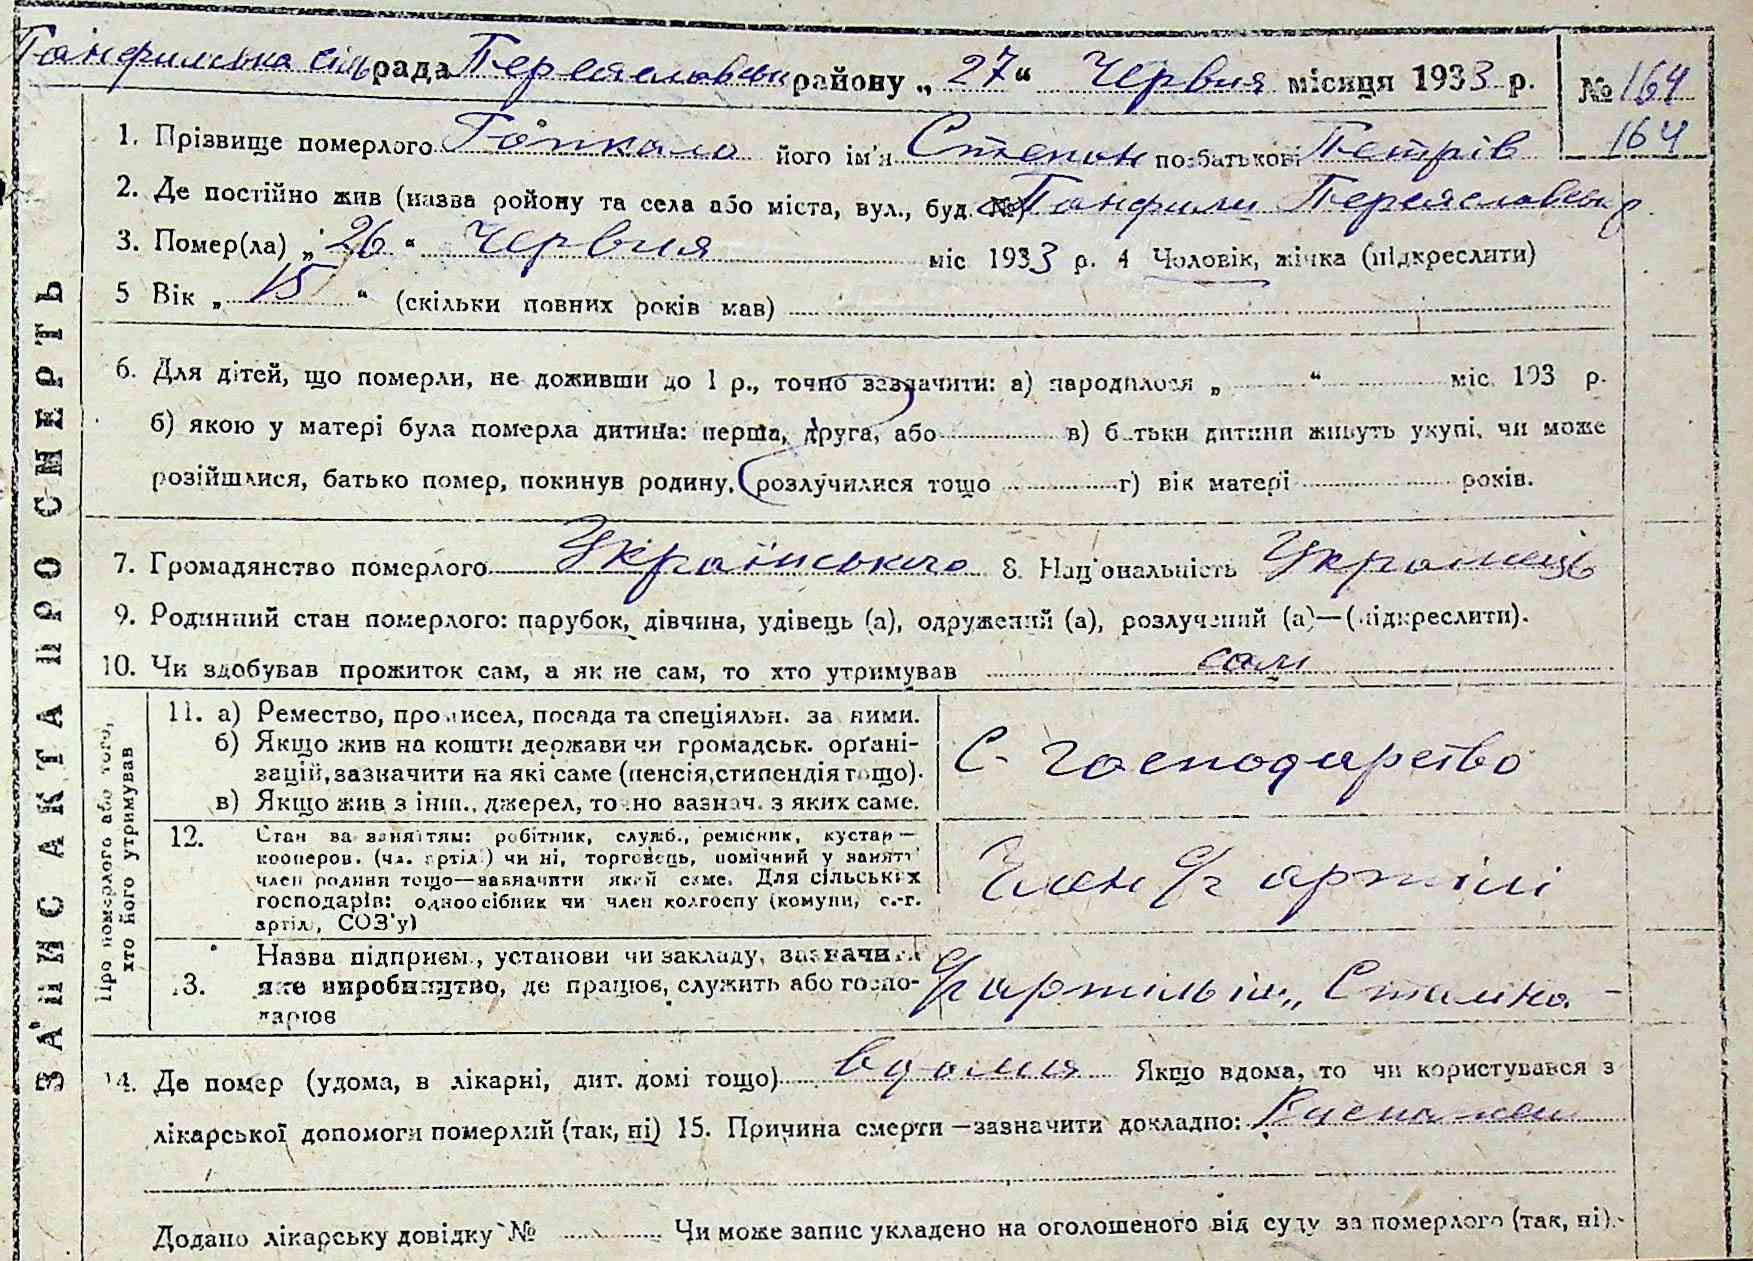 Панфилська сільрада Переяславськ району „27“ Червня місяця 1933 р. № 164
164
1. Прізвище померлого Гопкало його ім'я Степан по-батькові Петрів
2. Де постійно жив (назва ройону та села або міста, вул., буд. №) с Панфили Переяславськ р.
3. Помер(ла) „26“ Червня міс 1933 р. 4 Чоловік, жінка (підкреслити)
5 Вік „15“ (скільки повних років мав)
6. Для дітей, що померли, не доживши до 1 р., точно зазначити: а) народилося „ “ міс. 193 р.
б) якою у матері була померла дитина: перша, друга, або в) батьки дитини живуть укупі, чи може
розійшлися, батько помер, покинув родину, розлучилися тощо г) вік матері років.
7. Громадянство померлого Українського 8. Національність Українець
9. Родинний стан померлого: парубок, дівчина, удівець (а), одружений (а), розлучений (а)—(підкреслити).
10. Чи здобував прожиток сам, а як не сам, то хто утримував сам
ЗАПИС АКТА ПРО СМЕРТЬ
Про померлого або того,
хто його утримував
11. а) Ремество, промисел, посада та спеціяльн. за ними.
б) Якщо жив на кошти держави чи громадськ. орґані-
зацій, зазначити на які саме (пенсія, стипендія тощо).
в) Якщо жив з інш. джерел, точно зазнач. з яких саме.
С. господарство
12. Стан за заняттям: робітник, служб., ремісник, кустар—
кооперов. (чл. артілі) чи ні, торговець, помічний у занятті
член родини тощо—зазначити який саме. Для сільських
господарів: одноосібник чи член колгоспу (комуни, с.-г.
артілі, СОЗ'у)
Член с/г артілі
13. Назва підприєм., установи чи закладу, зазначити
яке виробництво, де працює, служить або госпо-
дарює
с/г артіль ім „Сталіна-
14. Де помер (удома, в лікарні, дит. домі тощо) вдома Якщо вдома, то чи користувався з
лікарської допомоги померлий (так, ні) 15. Причина смерти—зазначити докладно:
Додано лікарську довідку № Чи може запис укладено на оголошеного від суду за померлого (так, ні).